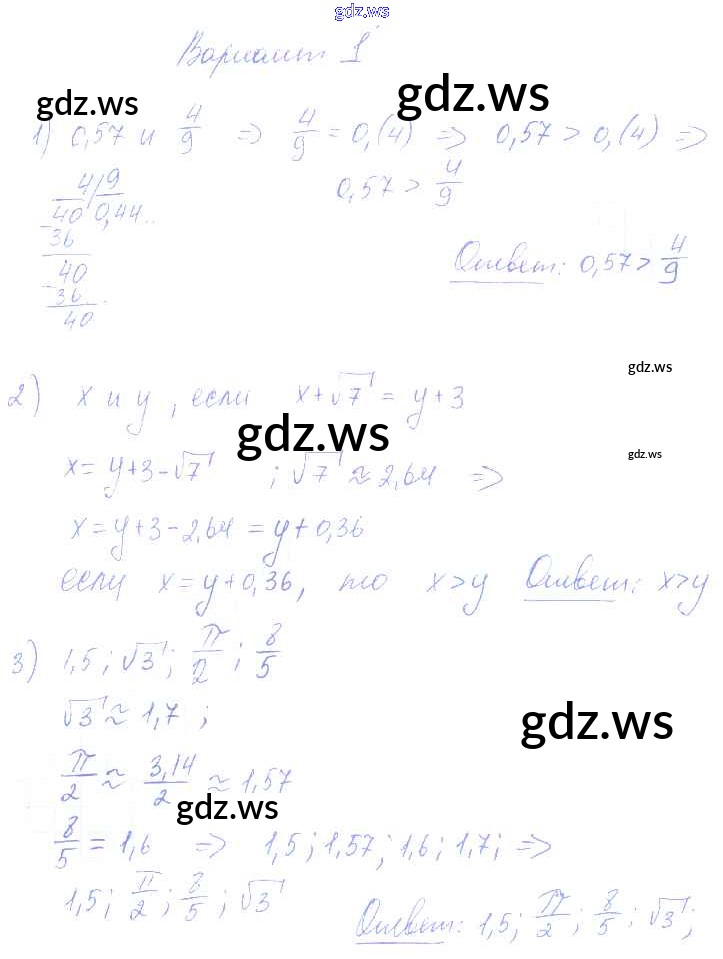 gdz.ws
Вариант 1
gdz.ws
gdz.ws
1) 0,57 и 4/9 => 4/9 = 0,(4) => 0,57 > 0,(4) =>
0,57 > 4/9
4 | 9
40 0,44..
- 36
40
- 36
40
Ответ: 0,57 > 4/9
gdz.ws
2) x и y, если x+√7 = y+3
gdz.ws
x = y+3-√7 ; √7 ≈ 2,64 =>
gdz.ws
x = y+3-2,64 = y+0,36
если x = y+0,36, то x>y Ответ: x>y
3) 1,5; √3; π/2; 8/5
√3 ≈ 1,7 ;
gdz.ws
π/2 ≈ 3,14/2 ≈ 1,57
gdz.ws
8/5 = 1,6 => 1,5; 1,57; 1,6; 1,7; =>
1,5; π/2; 8/5; √3
Ответ: 1,5; π/2; 8/5; √3;